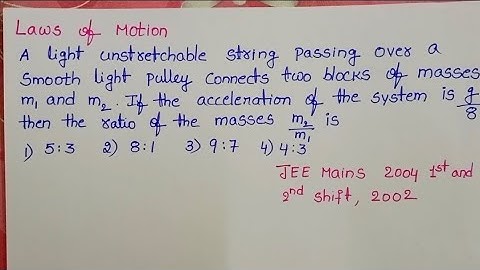 Laws of Motion
A light unstretchable string passing over a
smooth light pulley connects two blocks of masses
m₁ and m₂. If the acceleration of the system is g/8
then the ratio of the masses m₂/m₁ is
1) 5:3 2) 8:1 3) 9:7 4) 4:3
JEE Mains 2004 1st and
2nd shift, 2002